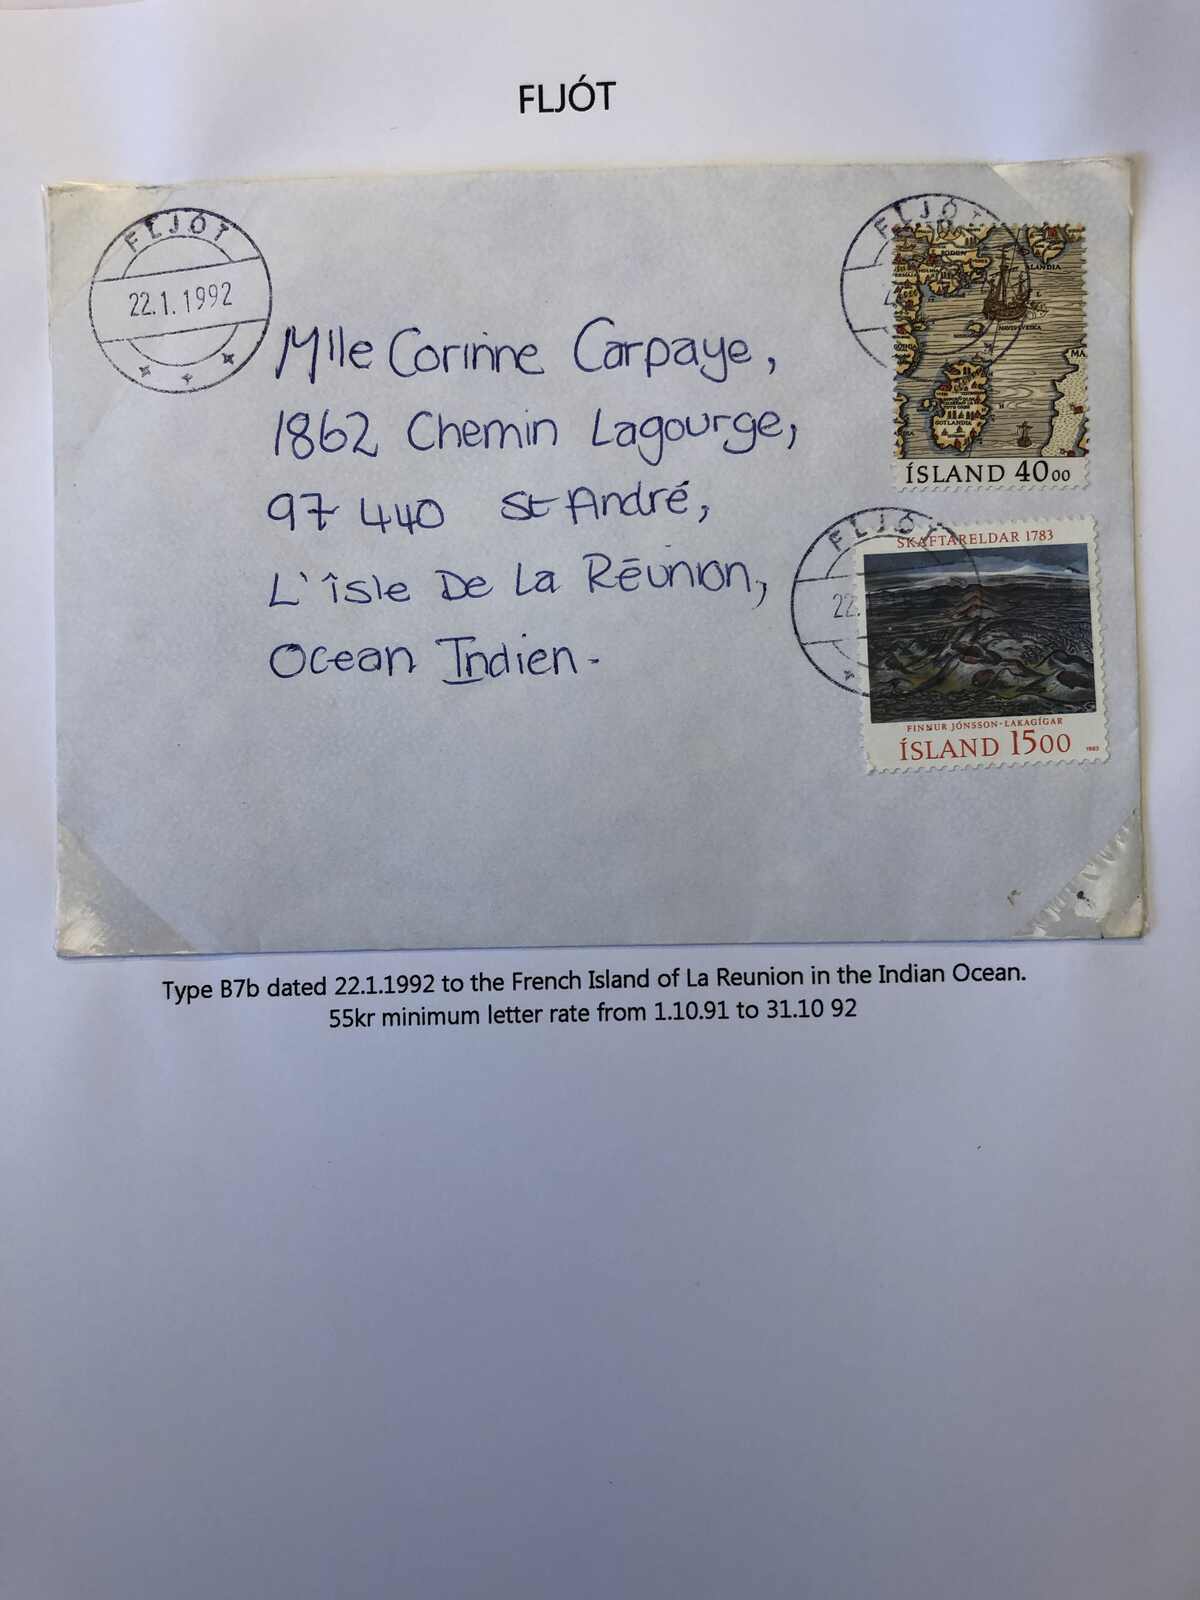 FLJÓT
FLJÓT
22.1.1992
FLJÓT
GOTLANDIA
ÍSLAND 4000
Mlle Corinne Carpaye,
1862 Chemin Lagourge,
97 440 St André,
L'îsle De La Réunion,
Ocean Indien-
FLJÓT
22.
SKAFTÁRELDAR 1783
FINNUR JÓNSSON-LAKAGÍGAR
ÍSLAND 1500
1983
Type B7b dated 22.1.1992 to the French Island of La Reunion in the Indian Ocean.
55kr minimum letter rate from 1.10.91 to 31.10 92